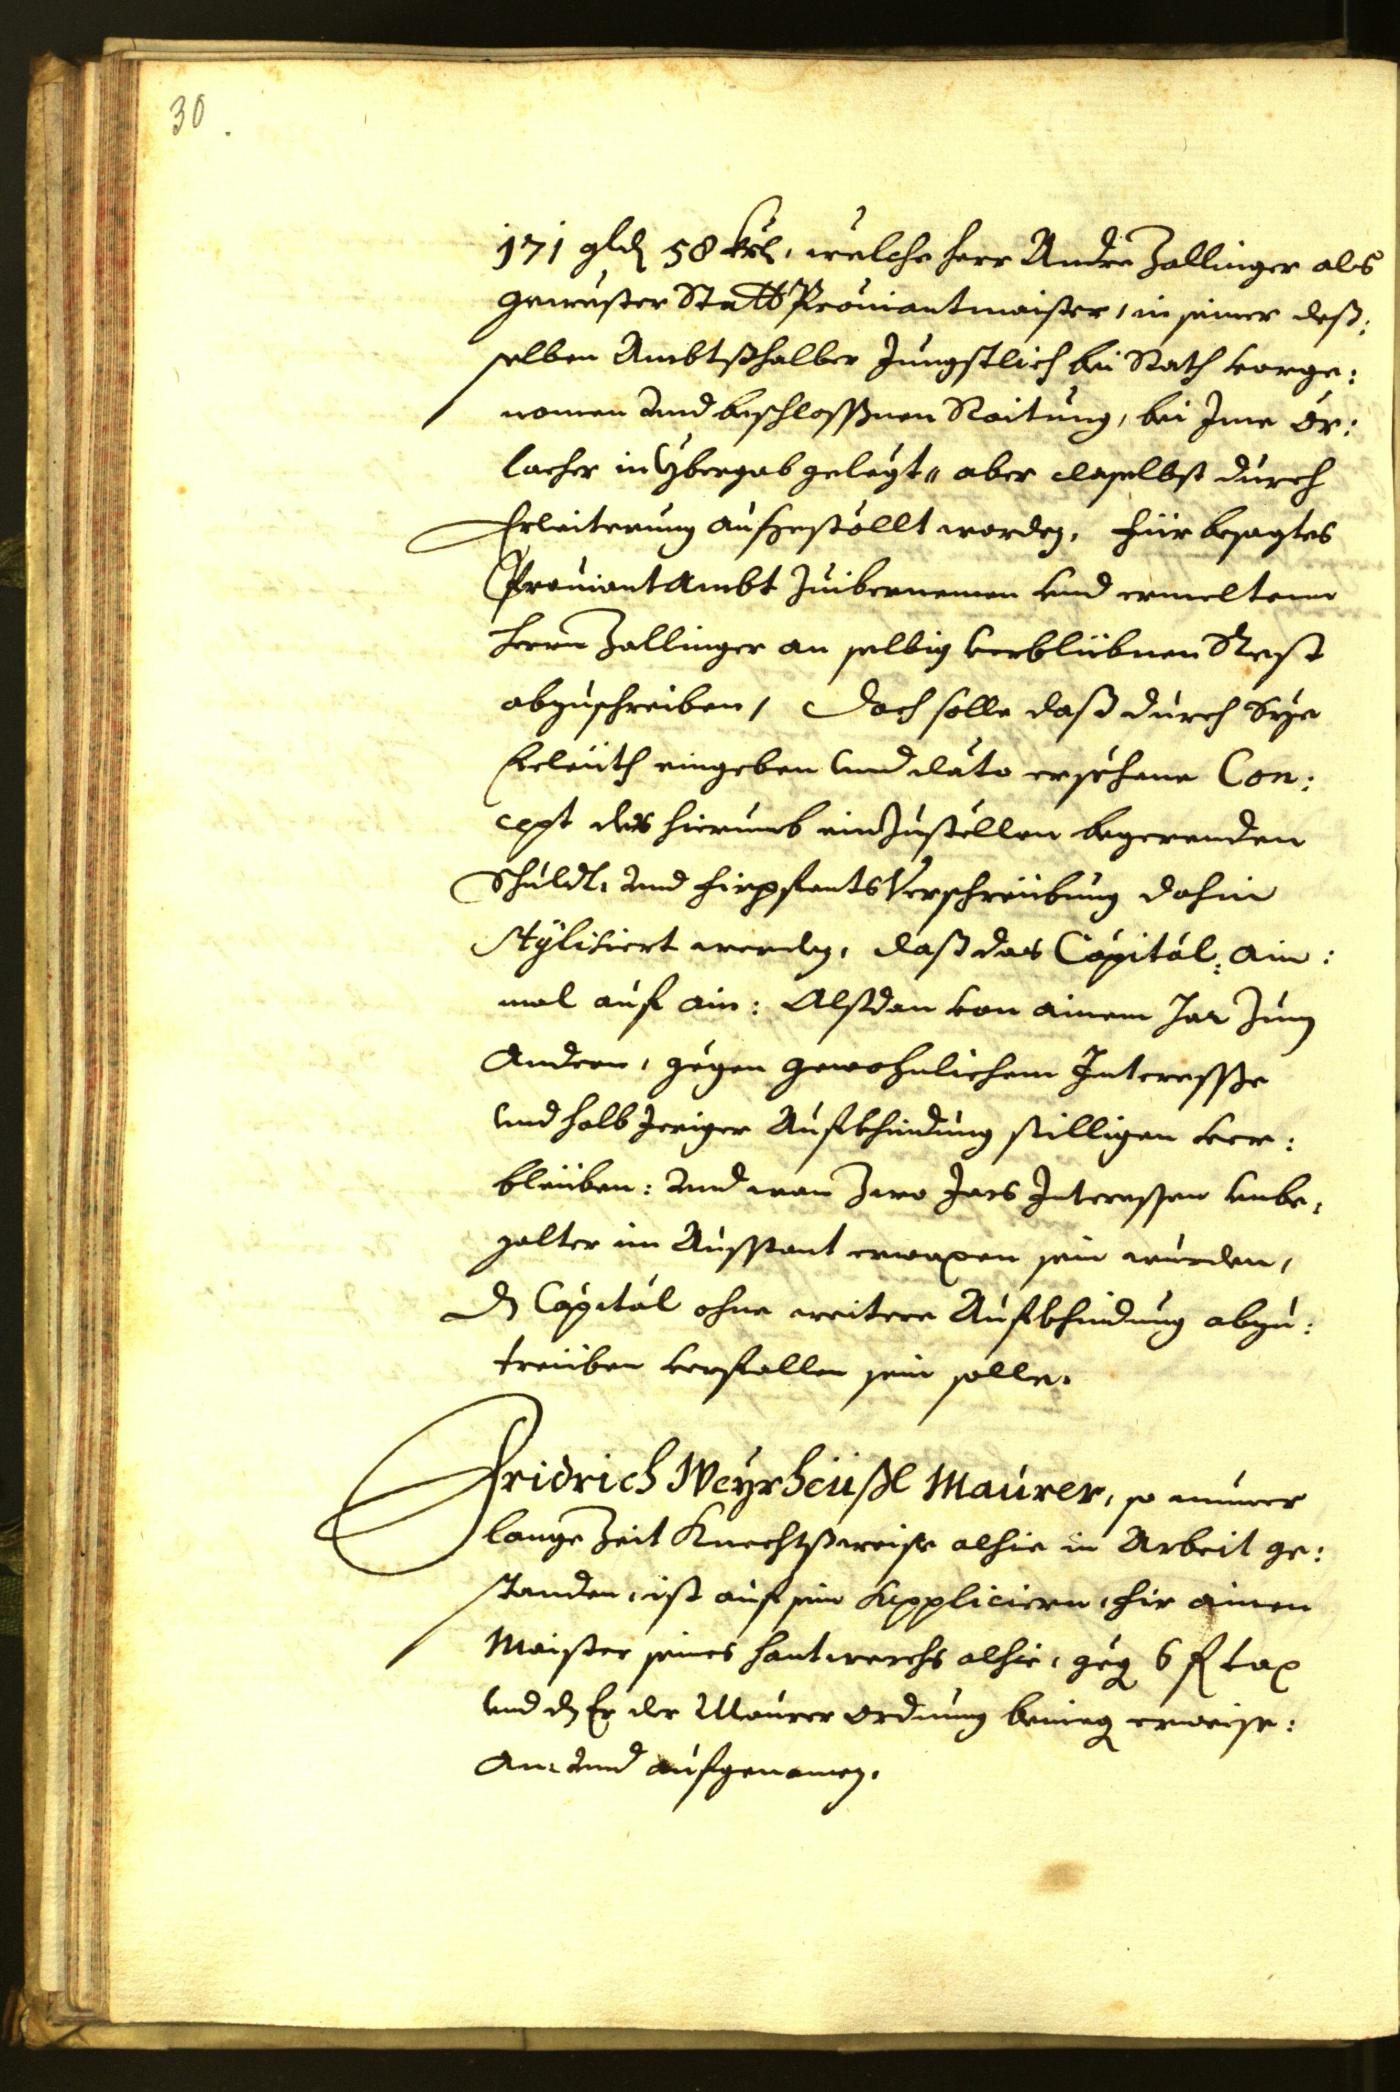 30
171 gld 58 krl, welche herr Andre Zallinger als
gewester Statt Prouiantmaister, in seiner deß:
selben Ambtßhalber Jungstlich bei Rath vorge:
nomen vnd beschloßnen Raitung, bei Jme Ör:
lacher in Ybergab gelegt, aber daselbst durch
Erleiterung ausgestöllt worden, für besagtes
Prouiant Ambt Zuibernemen vnd ermeltem
herrn Zallinger an selbig verblibnen Rest
abzuschreiben, Doch solle daß durch Sye
Eeleüth eingeben vnd dato ersehene Con:
cept des hierumb einZustellen begerenden
Schuldt: vnd fürpfants Verschreibung dahin
stÿlisiert werden, daß das Capital, ain:
mal auf ain: Alßdan von ainem Jar Zum
Andern, gegen gewohnlichem Interesse
vnd halb Jeriger Aufkhindung stilligen ver:
bleiben: vnd wan Zwo Jars Interessen vnbe:
zalter im Ausstant erwaxen sein wurden,
dz Capital ohne weitere Aufkhindung abzu:
treiben verfallen sein solle.
Fridrich Weyrheüßl Maurer, so nunmer
lange Zeit Knechtßweise alhie in Arbeit ge:
standen, ist auf sein suppliciern, fir ainen
Maister seines hantwerchs alhie, gegen 6 fl tax
vnd dz Er der Maurer ordnung benieg erweise:
An: vnd aufgenomen.